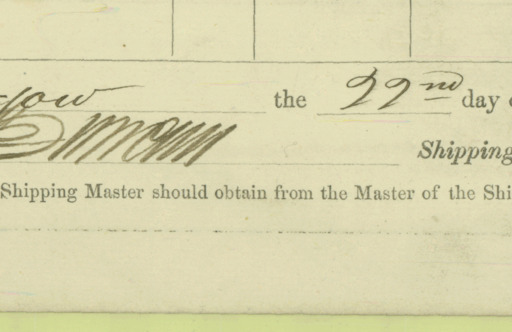 gow the 22nd day
Shipping
Shipping Master should obtain from the Master of the Shi